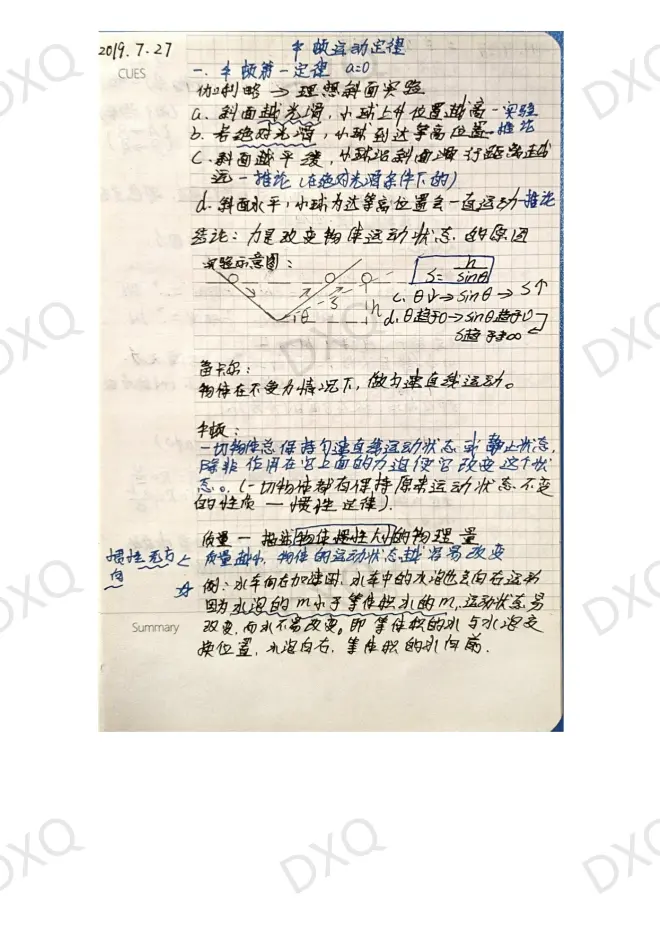 2019.7.27
牛顿运动定律
CUES
一. 牛顿第一定律 a=0
伽利略 → 理想斜面实验
a. 斜面越光滑,小球上升位置越高 - 实验
b. 若绝对光滑,小球到达等高位置 - 推论
c. 斜面越平缓,小球沿斜面滑行距离越
远 - 推论 (在绝对光滑条件下的)
d. 斜面水平,小球为达等高位置会一直运动 - 推论
结论: 力是改变物体运动状态的原因
实验示意图:
S = h/sinθ
c. θ↓ → sinθ → S↑
d. θ趋于0 → sinθ趋于0
S趋于∞
θ S h
笛卡尔:
物体在不受力情况下,做匀速直线运动。
牛顿:
一切物体总保持匀速直线运动状态或静止状态,
除非作用在它上面的力迫使它改变这个状
态。(一切物体都有保持原来运动状态不变
的性质 — 惯性定律).
质量 — 描述物体惯性大小的物理量
惯性无方向
质量越小,物体的运动状态越容易改变
☆ 例: 水车向右加速时,水车中的水泡也会向右运动
因为水泡的m小于等体积水的m,运动状态易
改变,而水不易改变。即等体积的水与水泡交
换位置,水泡向右,等体积的水向前.
Summary
DXQ